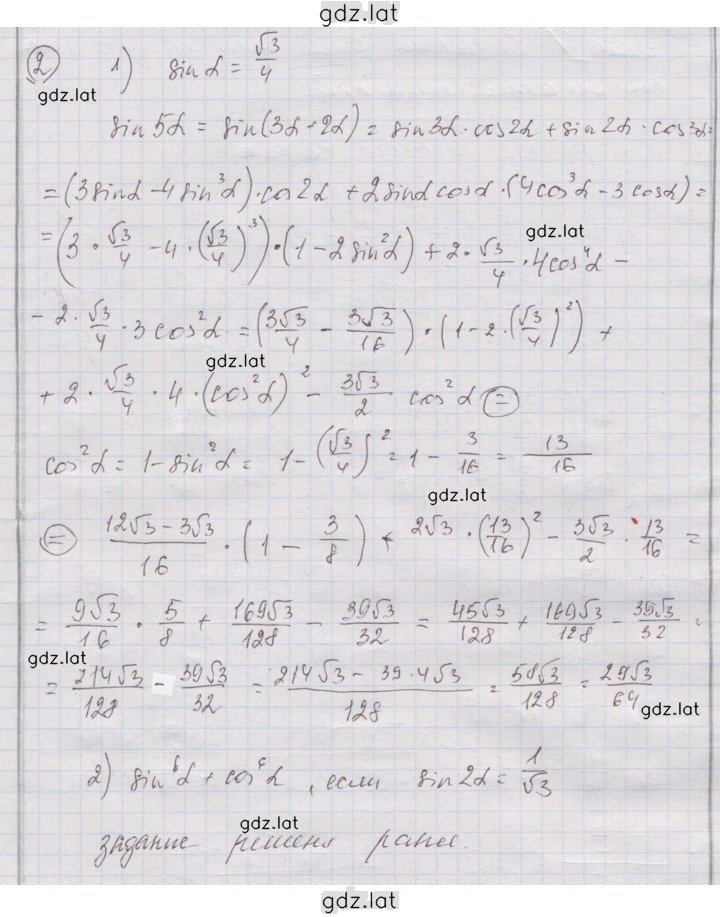 gdz.lat
② 1) sin α = √3/4
gdz.lat
sin 5α = sin(3α + 2α) = sin 3α · cos 2α + sin 2α · cos 3α =
= (3 sin α − 4 sin³α) · cos 2α + 2 sin α cos α · (4 cos³α − 3 cos α) =
gdz.lat
= (3 · √3/4 − 4 · (√3/4)³) · (1 − 2 sin²α) + 2 · √3/4 · 4 cos⁴α −
− 2 · √3/4 · 3 cos²α = (3√3/4 − 3√3/16) · (1 − 2 · (√3/4)²) +
gdz.lat
+ 2 · √3/4 · 4 · (cos²α)² − 3√3/2 cos²α ⊜
cos²α = 1 − sin²α = 1 − (√3/4)² = 1 − 3/16 = 13/16
gdz.lat
⊜ (12√3 − 3√3)/16 · (1 − 3/8) + 2√3 · (13/16)² − 3√3/2 · 13/16 =
= 9√3/16 · 5/8 + 169√3/128 − 39√3/32 = 45√3/128 + 169√3/128 − 39√3/32 =
gdz.lat
= 214√3/128 − 39√3/32 = (214√3 − 39·4√3)/128 = 58√3/128 = 29√3/64
gdz.lat
2) sin⁶α + cos⁶α, если sin 2α = 1/√3
gdz.lat
задание решена ранее.
gdz.lat